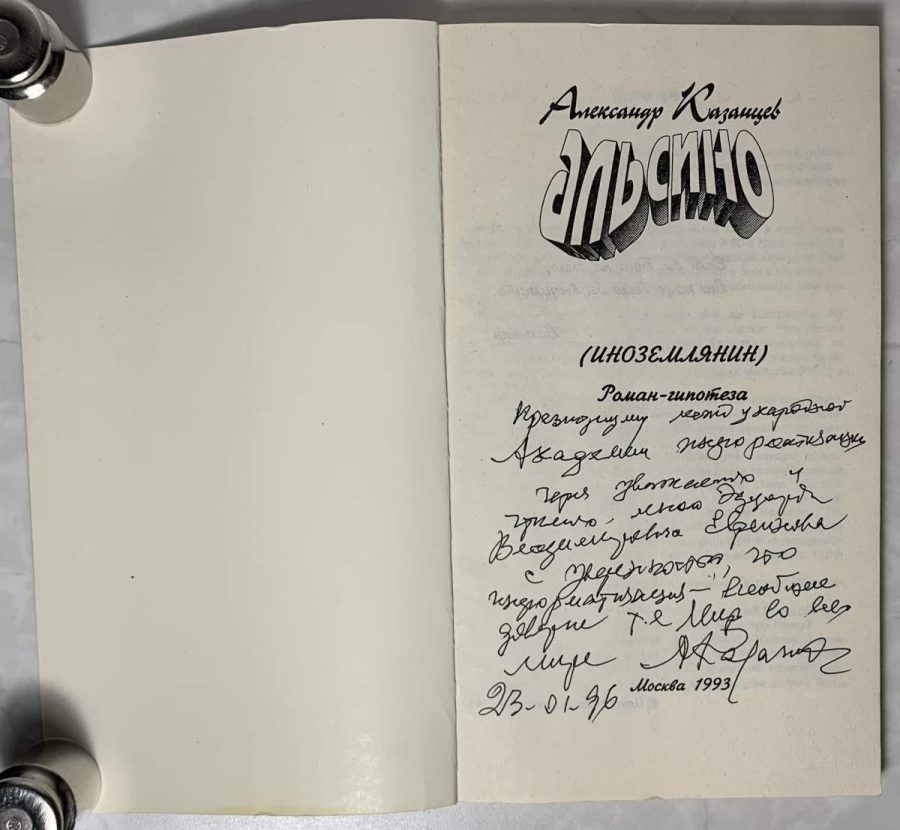 Александр Казанцев
Альсино
(ИНОЗЕМЛЯНИН)
Роман-гипотеза
Президиуму международной
Академии информатизации
через уважаемого и
чтимого мною Эдуарда
Владимировича Евреинова
с уверенностью, что
информатизация — всеобщее
доверие т.е Мир во всем
мире АКазанцев
23-01-96 Москва 1993